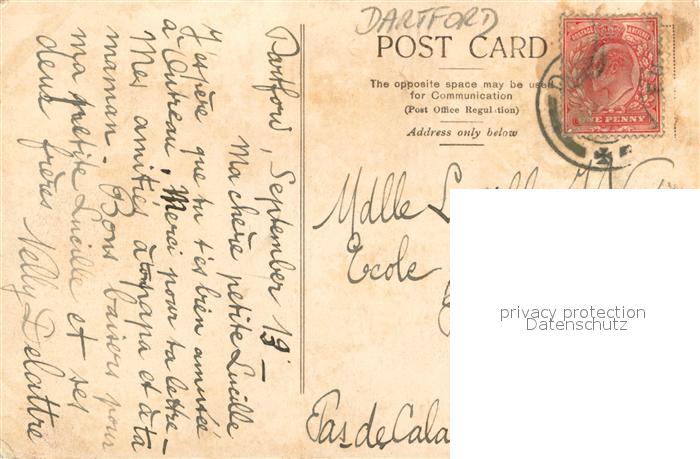 DARTFORD
POST CARD
The opposite space may be used
for Communication
(Post Office Regulation)
Address only below
ONE PENNY
Dartford, September 13 –
Ma chère petite Lucille
J'espère que tu t'es bien amusée
à Outreau. Merci pour ta lettre –
Mes amitiés à papa et à ta
maman. Bons baisers pour
ma petite Lucille et ses
deux frères Nelly Delattre
Mdlle
Ecole
Pas de Cala
privacy protection
Datenschutz